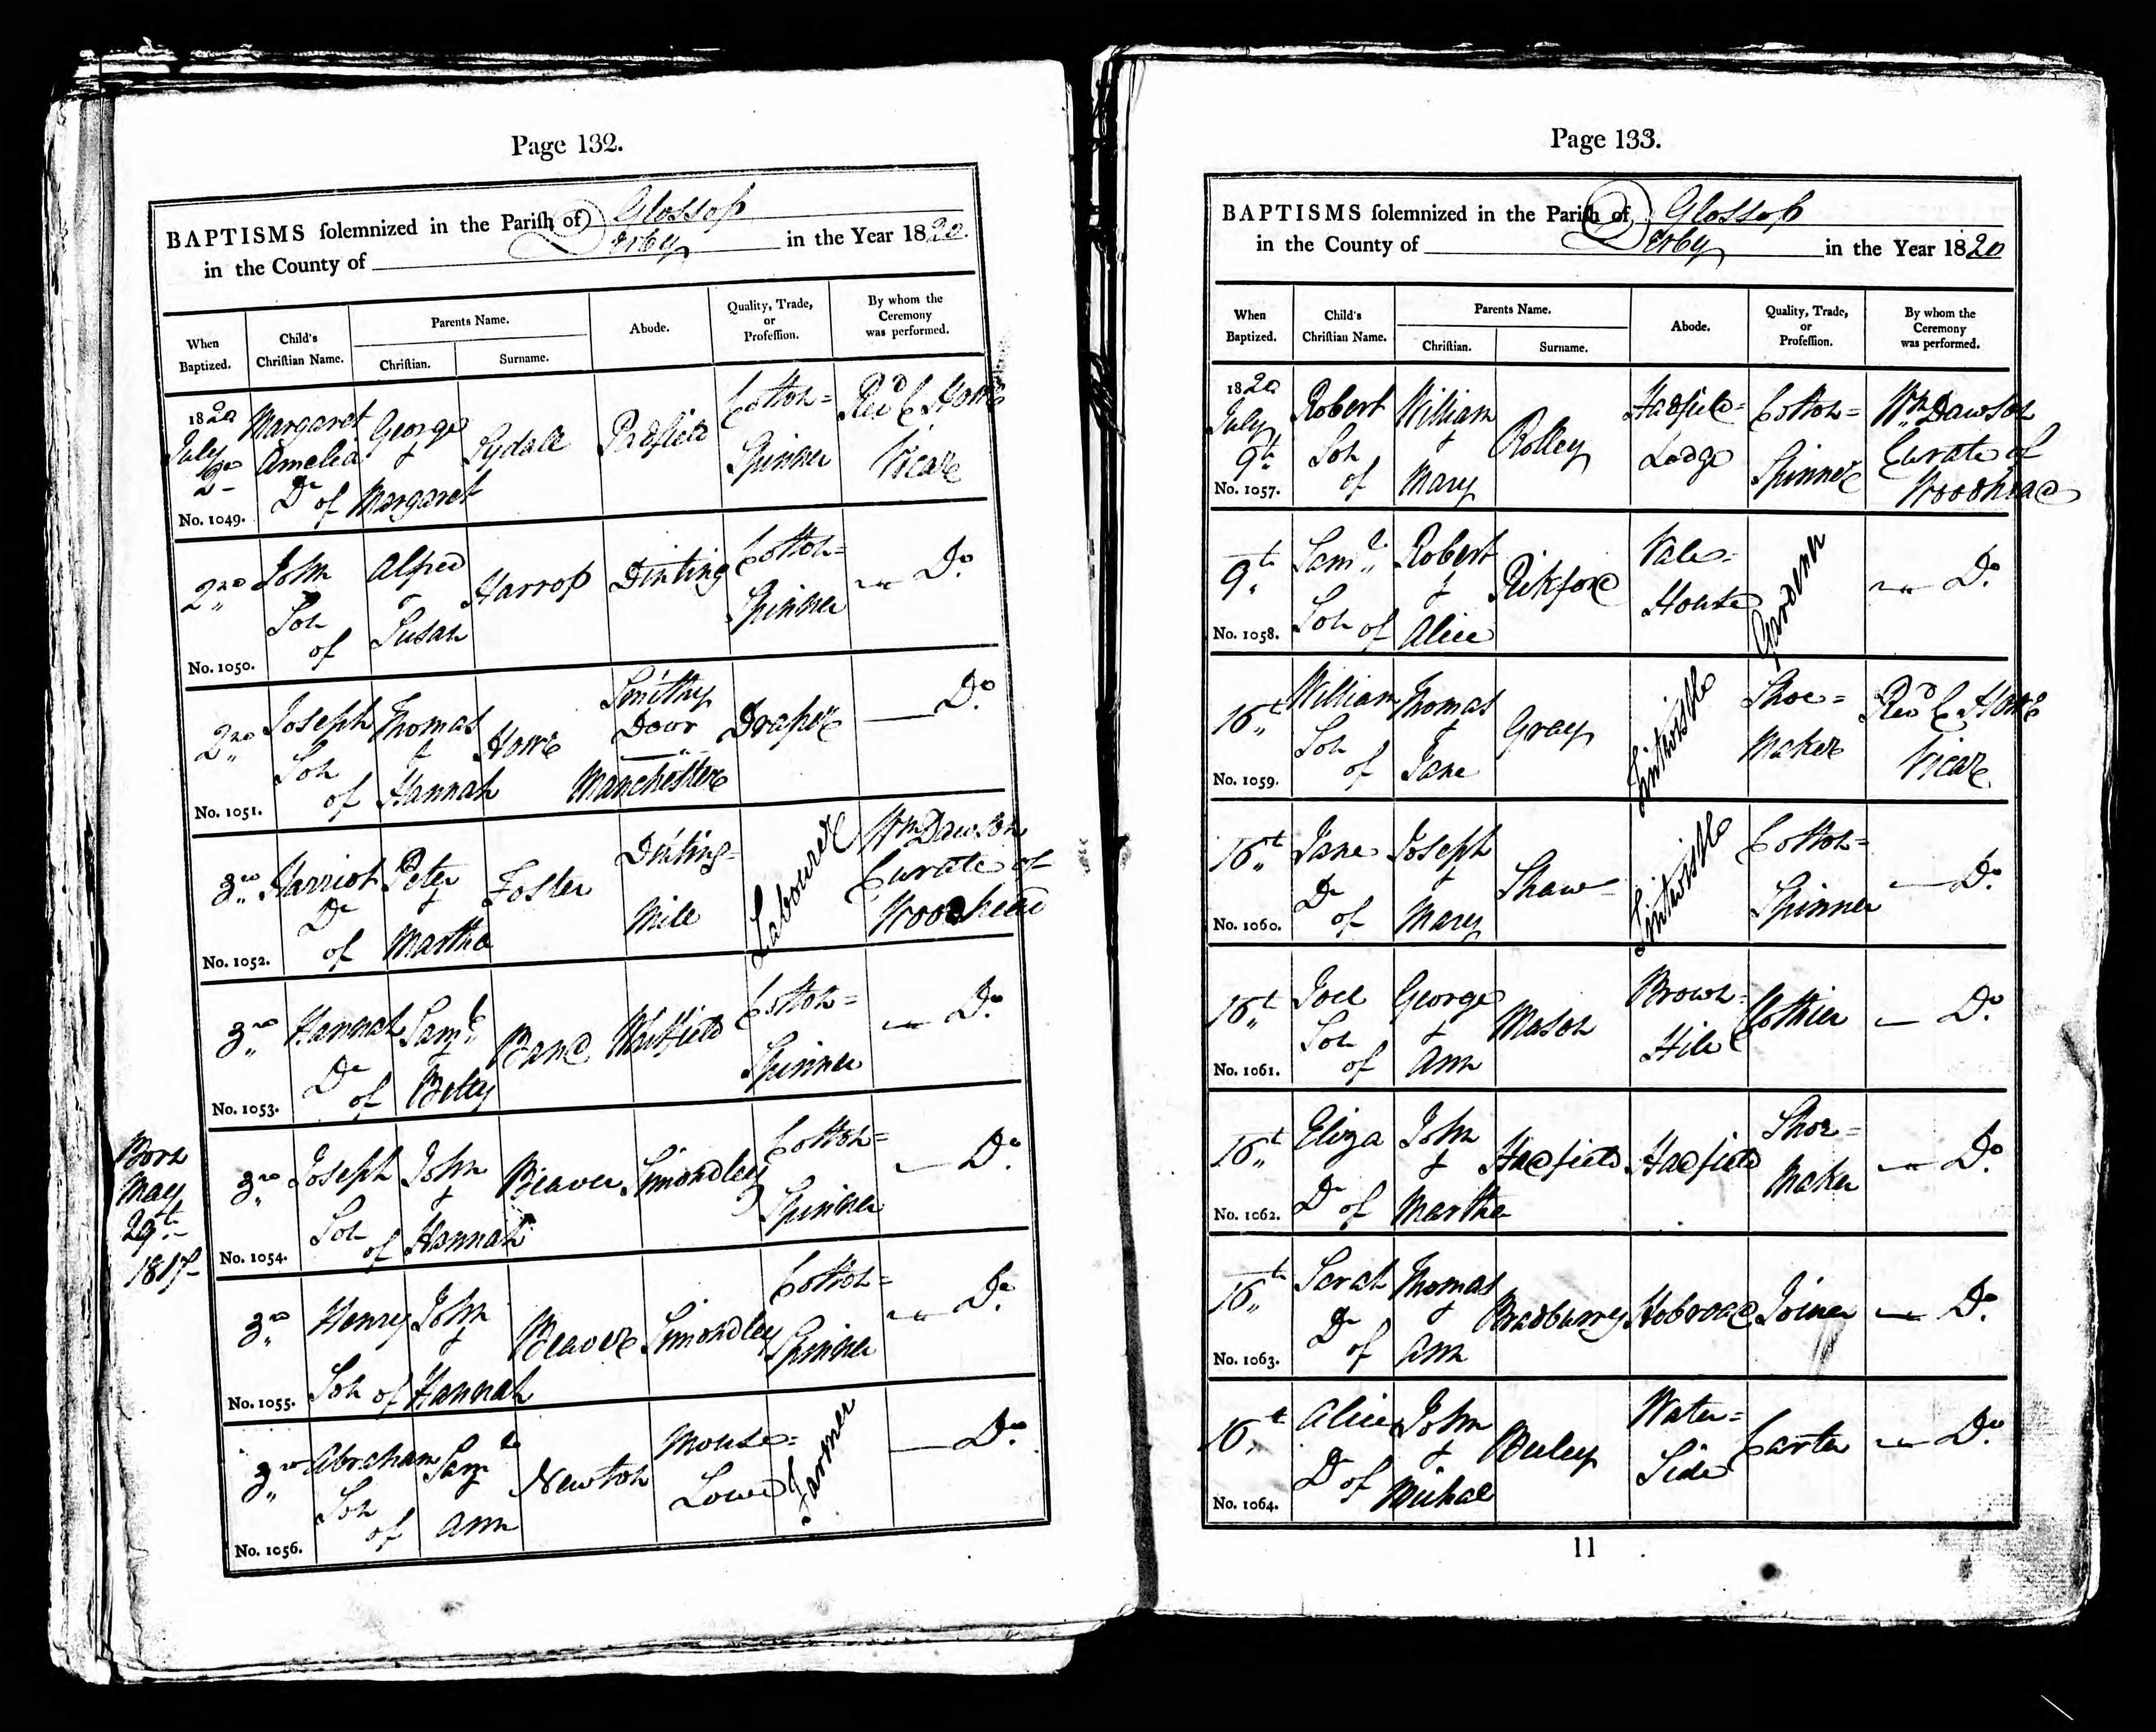 Page 132.
BAPTISMS solemnized in the Parish of Glossop
in the County of Derby in the Year 1820
When Baptized.
Child's Christian Name.
Parents Name.
Christian.
Surname.
Abode.
Quality, Trade, or Profession.
By whom the Ceremony was performed.
1820
July
2nd
No. 1049.
Margaret
Amelia
Dr of
George
&
Margaret
Padfield
Cotton=
Spinner
Revd C Howe
Vicar
2nd
No. 1050.
John
Son
of
Alfred
&
Susan
Harrop
Dinting
Cotton=
Spinner
Do
2nd
No. 1051.
Joseph
Son
of
Thomas
&
Hannah
Howe
Smithy
Door
Manchester
Draper
Do
3rd
No. 1052.
Harriot
Dr
of
Peter
&
Martha
Foster
Dinting=
Mile
Labourer
Wm Dawson
Curate of
Woodhead
3rd
No. 1053.
Hannah
Dr
of
Saml
&
Betty
Whitfield
Cotton=
Spinner
Do
Born
May
29th
1817
3rd
No. 1054.
Joseph
Son
of
John
&
Hannah
Beaver
Simondley
Cotton=
Spinner
Do
3rd
No. 1055.
Henry
Son of
John
&
Hannah
Beaver
Simondley
Cotton=
Spinner
Do
3rd
No. 1056.
Abraham
Son
of
Saml
&
Ann
Newton
Mouse=
Lowe
Farmer
Do
Page 133.
BAPTISMS solemnized in the Parish of Glossop
in the County of Derby in the Year 1820
When Baptized.
Child's Christian Name.
Parents Name.
Christian.
Surname.
Abode.
Quality, Trade, or Profession.
By whom the Ceremony was performed.
1820
July
9th
No. 1057.
Robert
Son
of
William
&
Mary
Rolley
Hadfield=
Lodge
Cotton=
Spinner
Wm Dawson
Curate of
Woodhead
9th
No. 1058.
Saml
Son of
Robert
&
Alice
Vale=
House
Gardener
Do
16th
No. 1059.
William
Son
of
Thomas
&
Jane
Gray
Tintwistle
Shoe=
Maker
Revd C Howe
Vicar
16th
No. 1060.
Jane
Dr
of
Joseph
&
Mary
Shaw
Tintwistle
Cotton=
Spinner
Do
16th
No. 1061.
Joel
Son
of
George
&
Ann
Mason
Brown=
Hill
Clothier
Do
16th
No. 1062.
Eliza
Dr of
John
&
Martha
Hadfield
Hadfield
Shoe=
Maker
Do
16th
No. 1063.
Sarah
Dr
of
Thomas
&
Ann
Bradburry
Hobroad
Joiner
Do
16th
No. 1064.
Alice
Dr of
John
&
Michal
Beeley
Water=
Side
Carter
Do
11